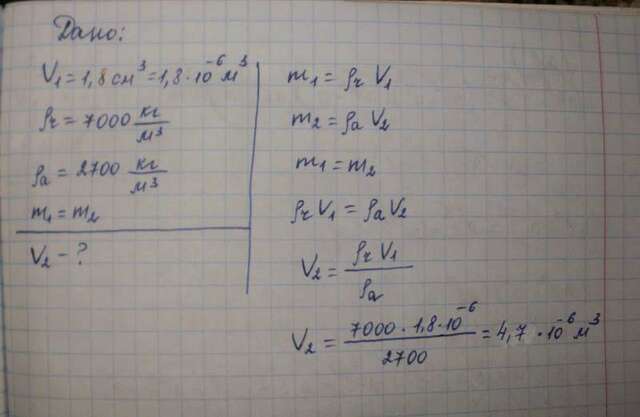 Дано:
V₁ = 1,8 см³ = 1,8 · 10⁻⁶ м³
ρч = 7000 кг/м³
ρа = 2700 кг/м³
m₁ = m₂
V₂ – ?
m₁ = ρч V₁
m₂ = ρа V₂
m₁ = m₂
ρч V₁ = ρа V₂
V₂ = ρч V₁ / ρа
V₂ = 7000 · 1,8 · 10⁻⁶ / 2700 = 4,7 · 10⁻⁶ м³